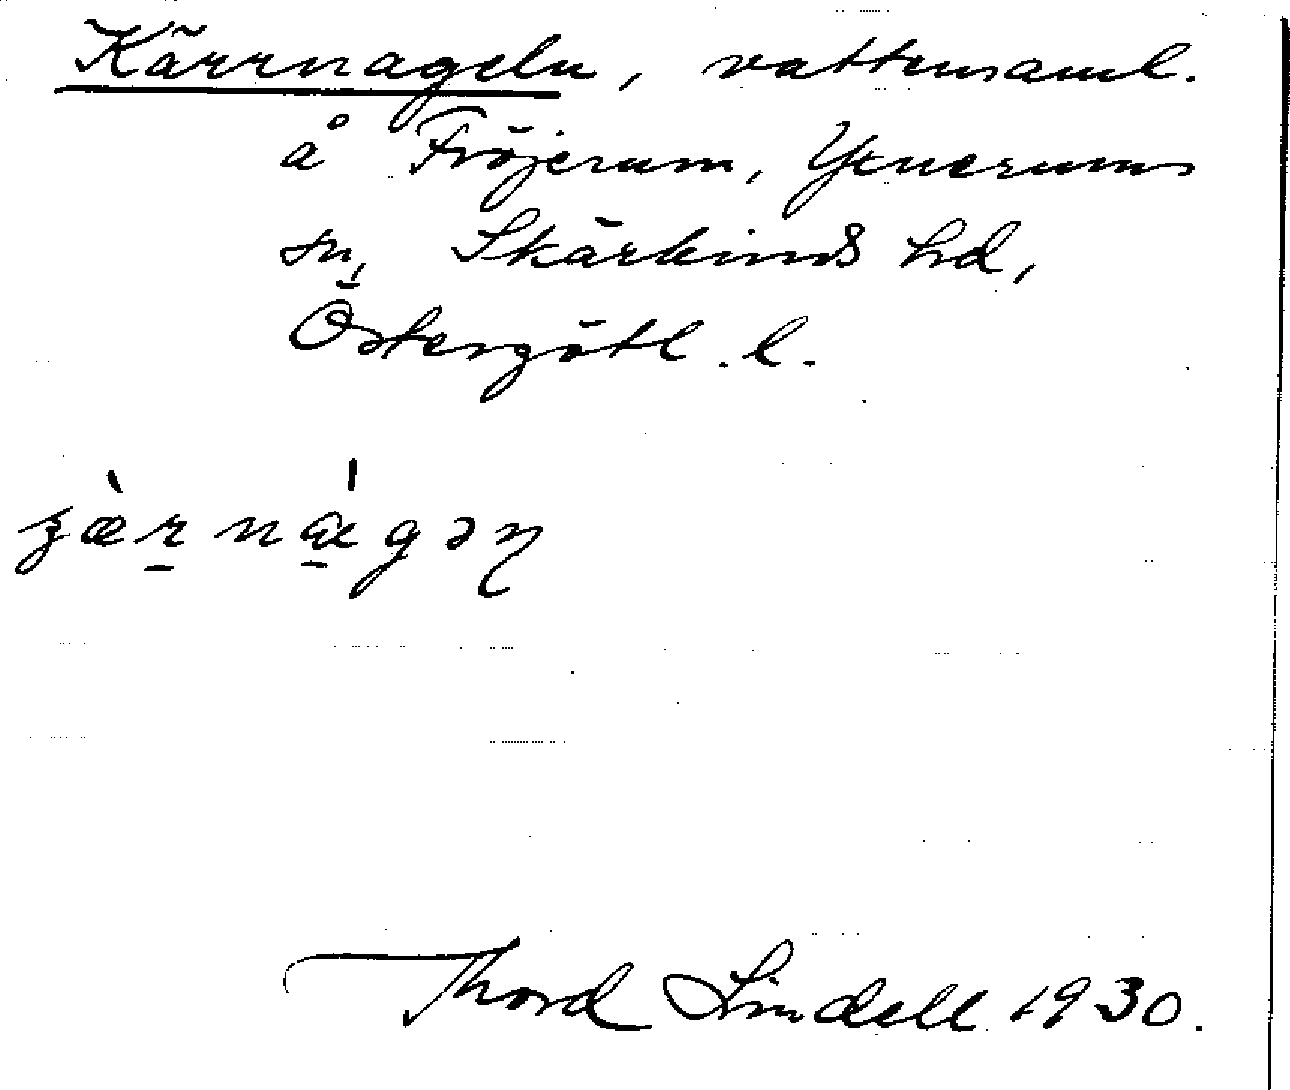 Kärrnageln, vattensaml.
å Fröjerum, Yxnerums
sn, Skärkinds hd,
Östergötl. l.
Thord Lindell 1930.